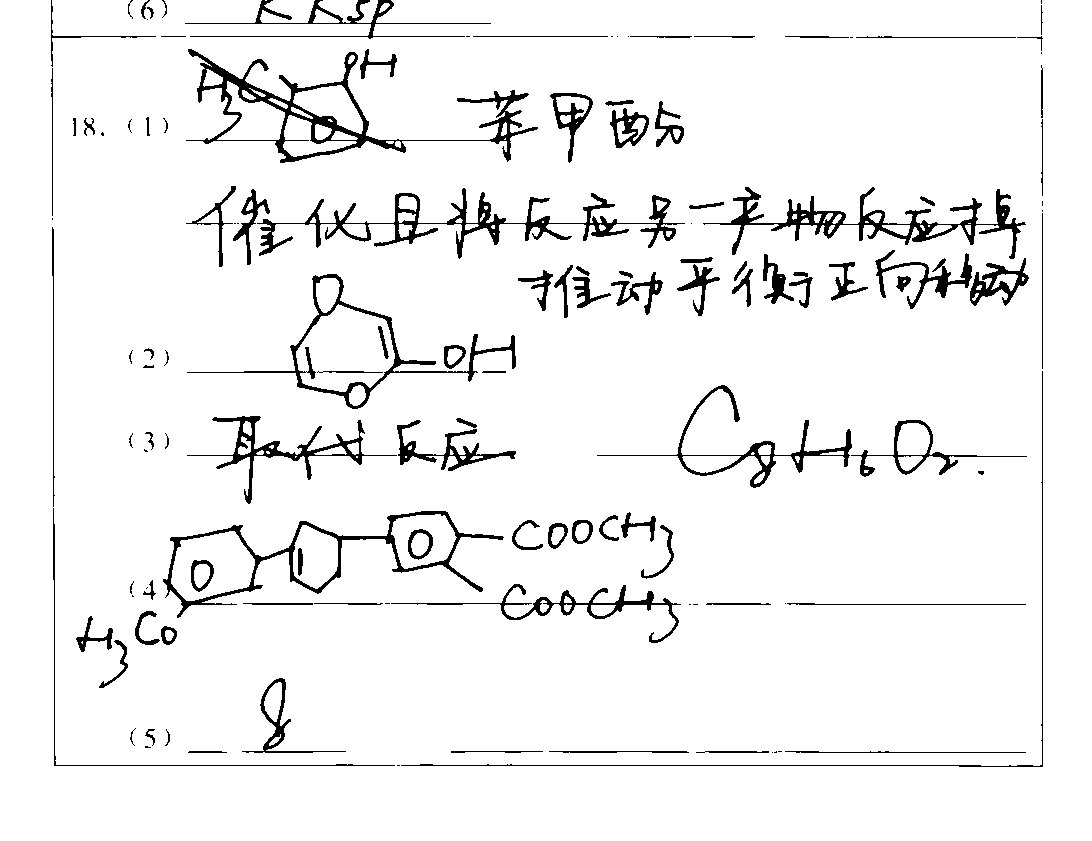 (6) K Ksp
18. (1) 苯甲酚
催化且将反应另一产物反应掉
推动平衡正向移动
(2) O OH O
(3) 取代反应 C8H6O2.
COOCH3
(4) H3CO COOCH3
(5) 8